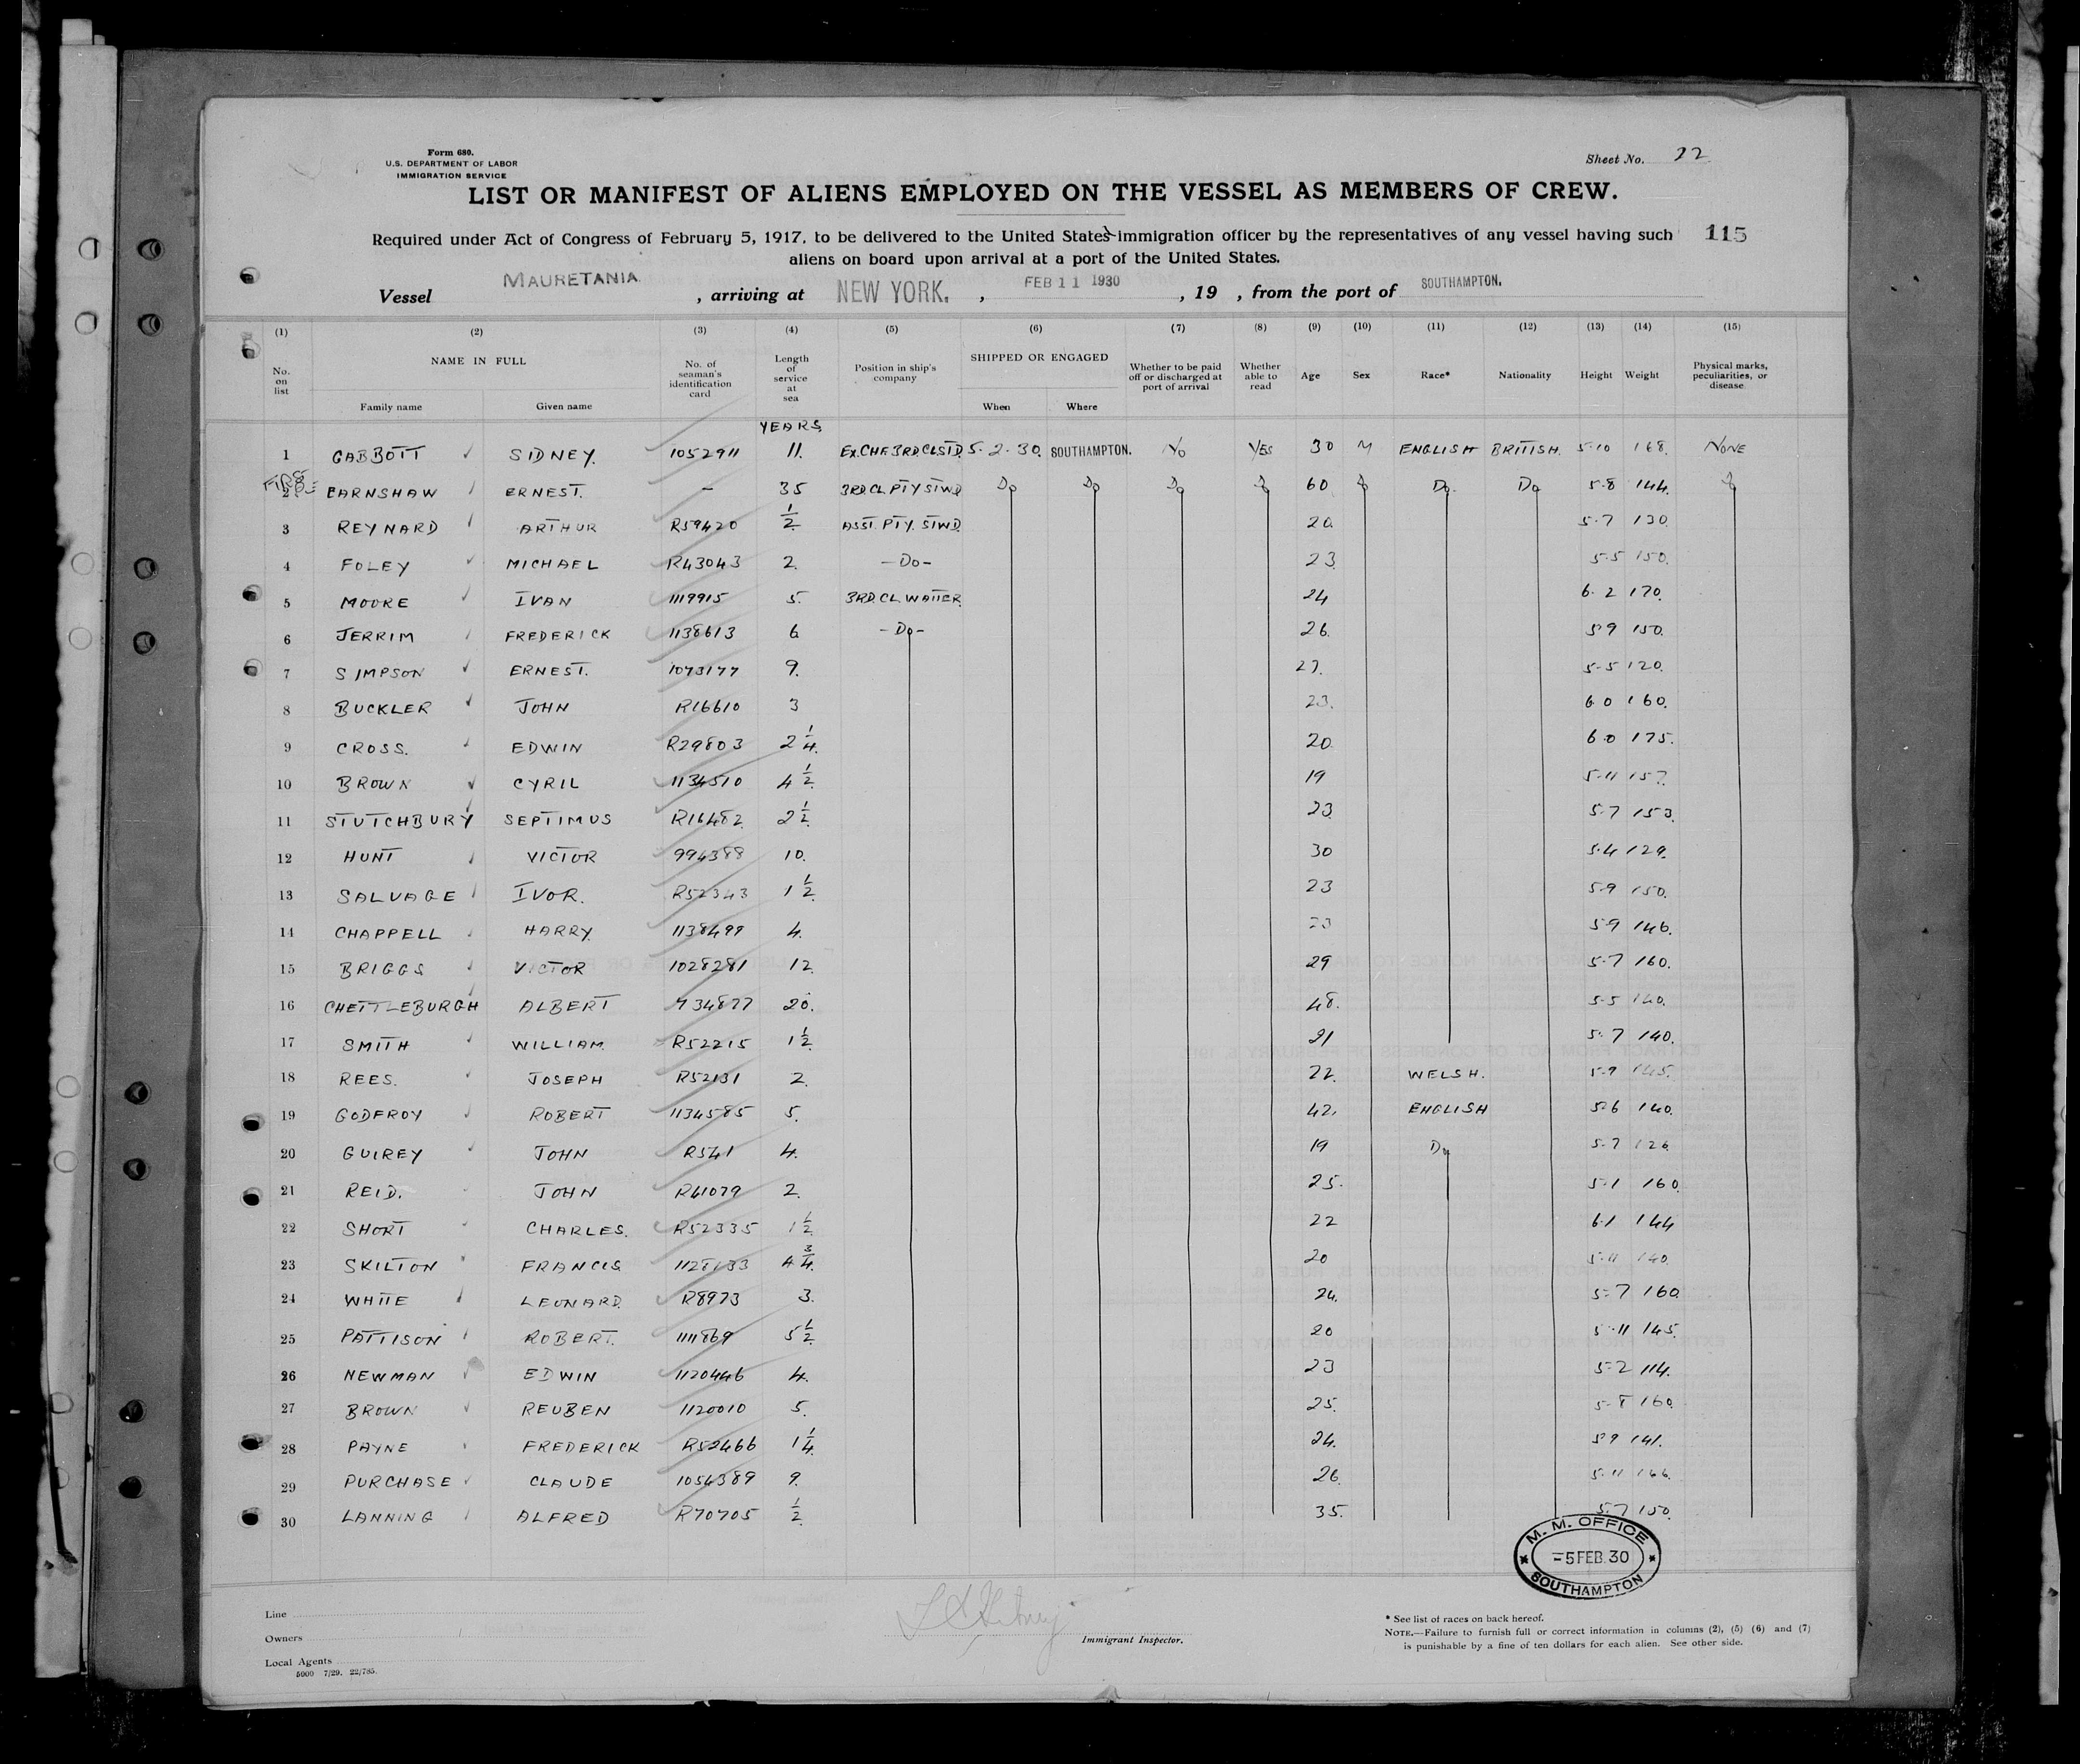 Form 680.
U.S. DEPARTMENT OF LABOR
IMMIGRATION SERVICE
Sheet No. 22
LIST OR MANIFEST OF ALIENS EMPLOYED ON THE VESSEL AS MEMBERS OF CREW.
Required under Act of Congress of February 5, 1917, to be delivered to the United States immigration officer by the representatives of any vessel having such 115
aliens on board upon arrival at a port of the United States.
Vessel MAURETANIA , arriving at NEW YORK. , FEB 11 1930 , 19 , from the port of SOUTHAMPTON.
(1) (2) (3) (4) (5) (6) (7) (8) (9) (10) (11) (12) (13) (14) (15)
No. on list NAME IN FULL Family name Given name No. of seaman's identification card Length of service at sea Position in ship's company SHIPPED OR ENGAGED When Where Whether to be paid off or discharged at port of arrival Whether able to read Age Sex Race* Nationality Height Weight Physical marks, peculiarities, or disease
YEARS
1 GABBOTT SIDNEY. 1052911 11. EX.CHF.3RD.CLSTD 5.2.30. SOUTHAMPTON. No YES 30 M ENGLISH BRITISH. 5-10 168. NONE
2 EARNSHAW ERNEST. - 35 3RD.CL.PTY STWD Do Do Do Do 60 Do Do. Do 5-8 144. Do
3 REYNARD ARTHUR R59420 1/2 ASST. PTY. STWD. 20. 5-7 130.
4 FOLEY MICHAEL R43043 2. -Do- 23. 5-5 150.
5 MOORE IVAN 1119915 5. 3RD.CL.WAITER. 24 6-2 170.
6 JERRIM FREDERICK 1138613 6 -Do- 26. 5-9 150.
7 SIMPSON ERNEST. 1073177 9. 27. 5-5 120.
8 BUCKLER JOHN R16610 3 23. 6-0 160.
9 CROSS. EDWIN R29803 2 1/4. 20. 6-0 175.
10 BROWN CYRIL 1134510 4 1/2. 19 5-11 157.
11 STUTCHBURY SEPTIMUS R16482 2 1/2. 23. 5-7 153.
12 HUNT VICTOR 994388 10. 30 5-4 129.
13 SALVAGE IVOR. R52343 1 1/2. 23 5-9 150.
14 CHAPPELL HARRY. 1138499 4. 23 5-9 146.
15 BRIGGS VICTOR 1028281 12. 29 5-7 160.
16 CHETTLEBURGH ALBERT 734877 20. 48. 5-5 140.
17 SMITH WILLIAM. R52215 1 1/2. 21 5-7 140.
18 REES. JOSEPH R52131 2. 22. WELSH. 5-9 145.
19 GODFROY ROBERT 1134585 5. 42. ENGLISH 5-6 140.
20 GUIREY JOHN R541 4. 19 Do 5-7 126.
21 REID. JOHN R61079 2. 25. 5-1 160.
22 SHORT CHARLES. R52335 1 1/2. 22 6-1 144
23 SKILTON FRANCIS 1128133 4 3/4. 20 5-11 140.
24 WHITE LEONARD. R8973 3. 24. 5-7 160.
25 PATTISON ROBERT. 1111869 5 1/2 20 5-11 145.
26 NEWMAN EDWIN 1120446 4. 23 5-2 114.
27 BROWN REUBEN 1120010 5. 25. 5-8 160.
28 PAYNE FREDERICK R52466 1 1/4. 24. 5-9 141.
29 PURCHASE CLAUDE 1054389 9. 26. 5-11 166.
30 LANNING ALFRED R70705 1/2. 35. 5-7 150.
M. M. OFFICE
-5 FEB. 30
SOUTHAMPTON
Line
Owners
Local Agents
5000 7/29. 22/785.
Immigrant Inspector.
* See list of races on back hereof.
NOTE.—Failure to furnish full or correct information in columns (2), (5) (6) and (7)
is punishable by a fine of ten dollars for each alien. See other side.